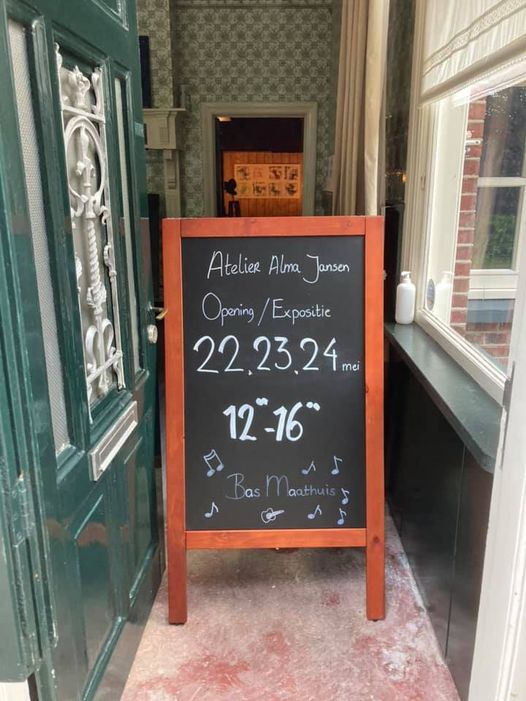 Atelier Alma Jansen
Opening/Expositie
22.23.24 mei
12°°-16°°
Bas Maathuis